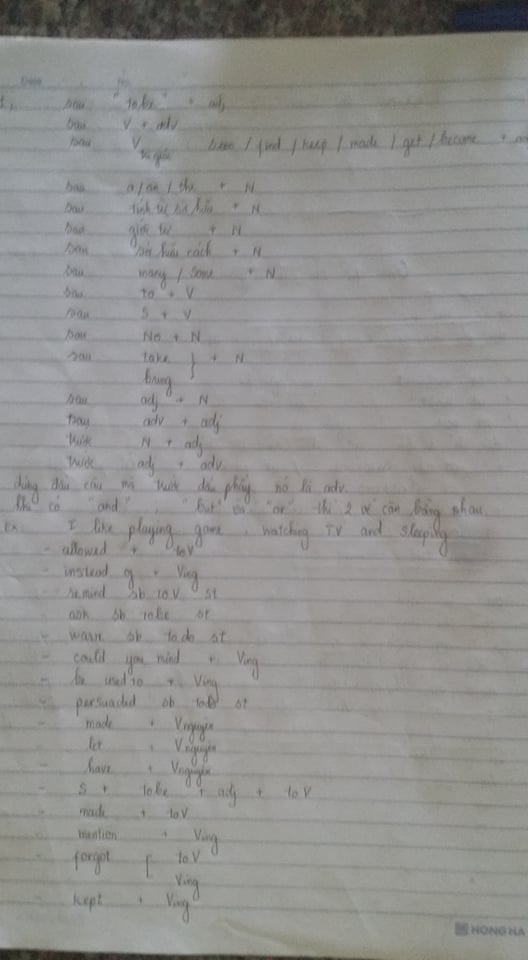 1,   sau   "tobe" + adj
sau   V + adv
sau   V tri giác   seen / find / keep / made / get / become +
sau   a / an / the + N
sau   tính từ sở hữu + N
sau   giới từ + N
sau   sở hữu cách + N
sau   many / some + N
sau   to + V
sau   S + V
sau   No + N
sau   take } + N
bring
sau   adj + N
sau   adv + adj
trước   N + adj
trước   adj + adv
đứng đầu câu mà trước dấu phẩy nó là adv.
khi có "and", "but" và "or" thì 2 vế cân bằng nhau.
Ex.   I like playing game, watching TV and sleeping
- allowed + toV
- instead of + Ving
- remind sb toV st
ask sb tobe st
- warn sb to do st
- could you mind + Ving
- be used to + Ving
- persuaded sb todo st
- made + Vnguyên
- let + Vnguyên
- have + Vnguyên
- S + tobe + adj + toV
- made + toV
- mention + Ving
- forgot [ toV
Ving
- kept + Ving
HONG HA